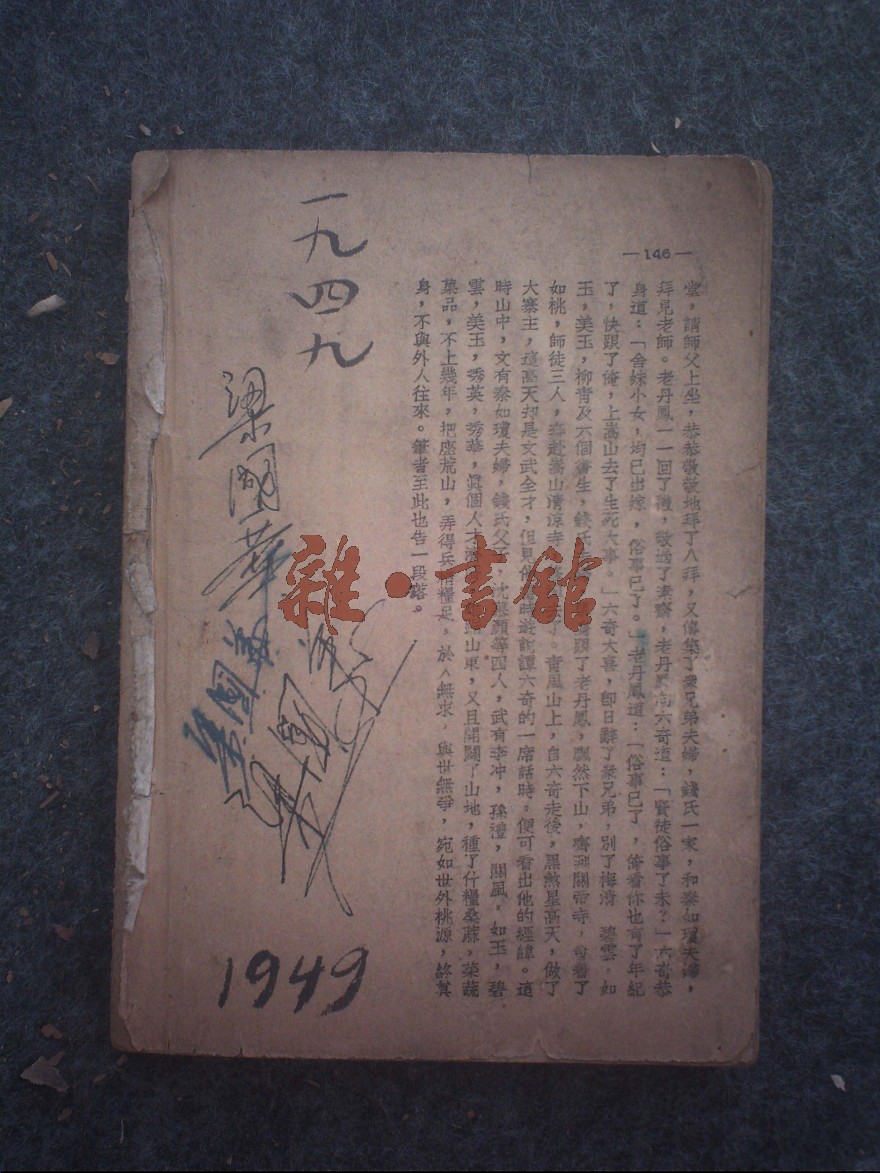 —146—
堂，請師父上坐，恭恭敬敬地拜了八拜，又傳集了衆兄弟夫婦，錢氏一家，和秦如瓊夫婦，
拜見老師。老丹鳳一一回了禮，敬過了素齋，老丹鳳向六奇道：「賢徒俗事了未？」六奇恭
身道：「舍妹小女，均已出嫁，俗事已了。」老丹鳳道：「俗事已了，俺看你也有了年紀
了，快跟了俺，上嵩山去了生死大事。」六奇大喜，卽日辭了衆兄弟，別了梅清 碧雲，如
玉，美玉，柳青及六個書生，錢氏 跟了老丹鳳，飄然下山，齊到關帝寺，會着了
如桃，師徒三人，齊赴嵩山清涼寺 了。青風山上，自六奇走後，黑煞星高天，做了
大寨主，這高天却是文武全才，但見他 時遊說譚六奇的一席話時。便可看出他的經緯。這
時山中，文有秦如瓊夫婦，錢氏父子，沈 顏等四人，武有李冲，孫禮，關風，如玉，碧
雲，美玉，秀英，秀華，眞個人才濟 山東，又且開闢了山地，種了什糧桑蔴，菜蔬
菓品，不上幾年，把座荒山，弄得兵精糧足，於人無求，與世無爭，宛如世外桃源，終其
身，不與外人往來。筆者至此也告一段落。
一九四九
梁國華
梁國華
梁國
1949
雜·書館